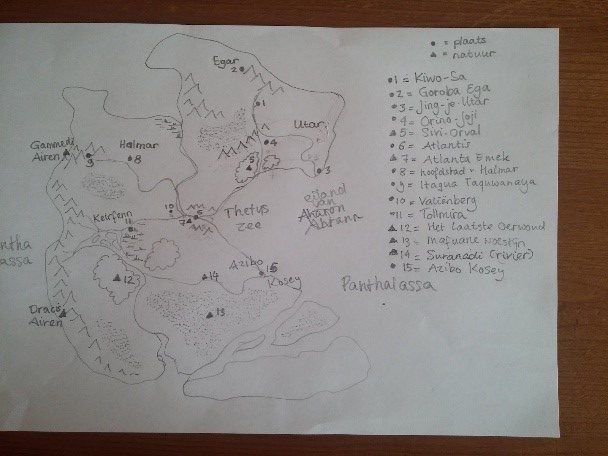 • = plaats
▲ = natuur
•1 = Kiwo-Sa
•2 = Goroba Ega
•3 = Jing-je-Utar
•4 = Orino-Joji
▲5 = Siri-Orval
•6 = Atlantis
▲7 = Atlanta Emek
•8 = hoofdstad v Halmar
•9 = Itagua Taguwanaya
•10 = Valcënberg
•11 = Tolimura
▲12 = Het Laatste Oerwoud
▲13 = Mafuane woestijn
▲14 = Suranadi (rivier)
•15 = Azibo Kosey
Egar
2
1
Utar
4
5
3
Gammedi
Airen
9
Halmar
8
eiland
van
Aharon
Abrann
10
6
7
Thetys
zee
Keirfenn
11
Azibo
Kosey
15
12
14
13
Dracis
Airen
ntha
assa
Panthalassa